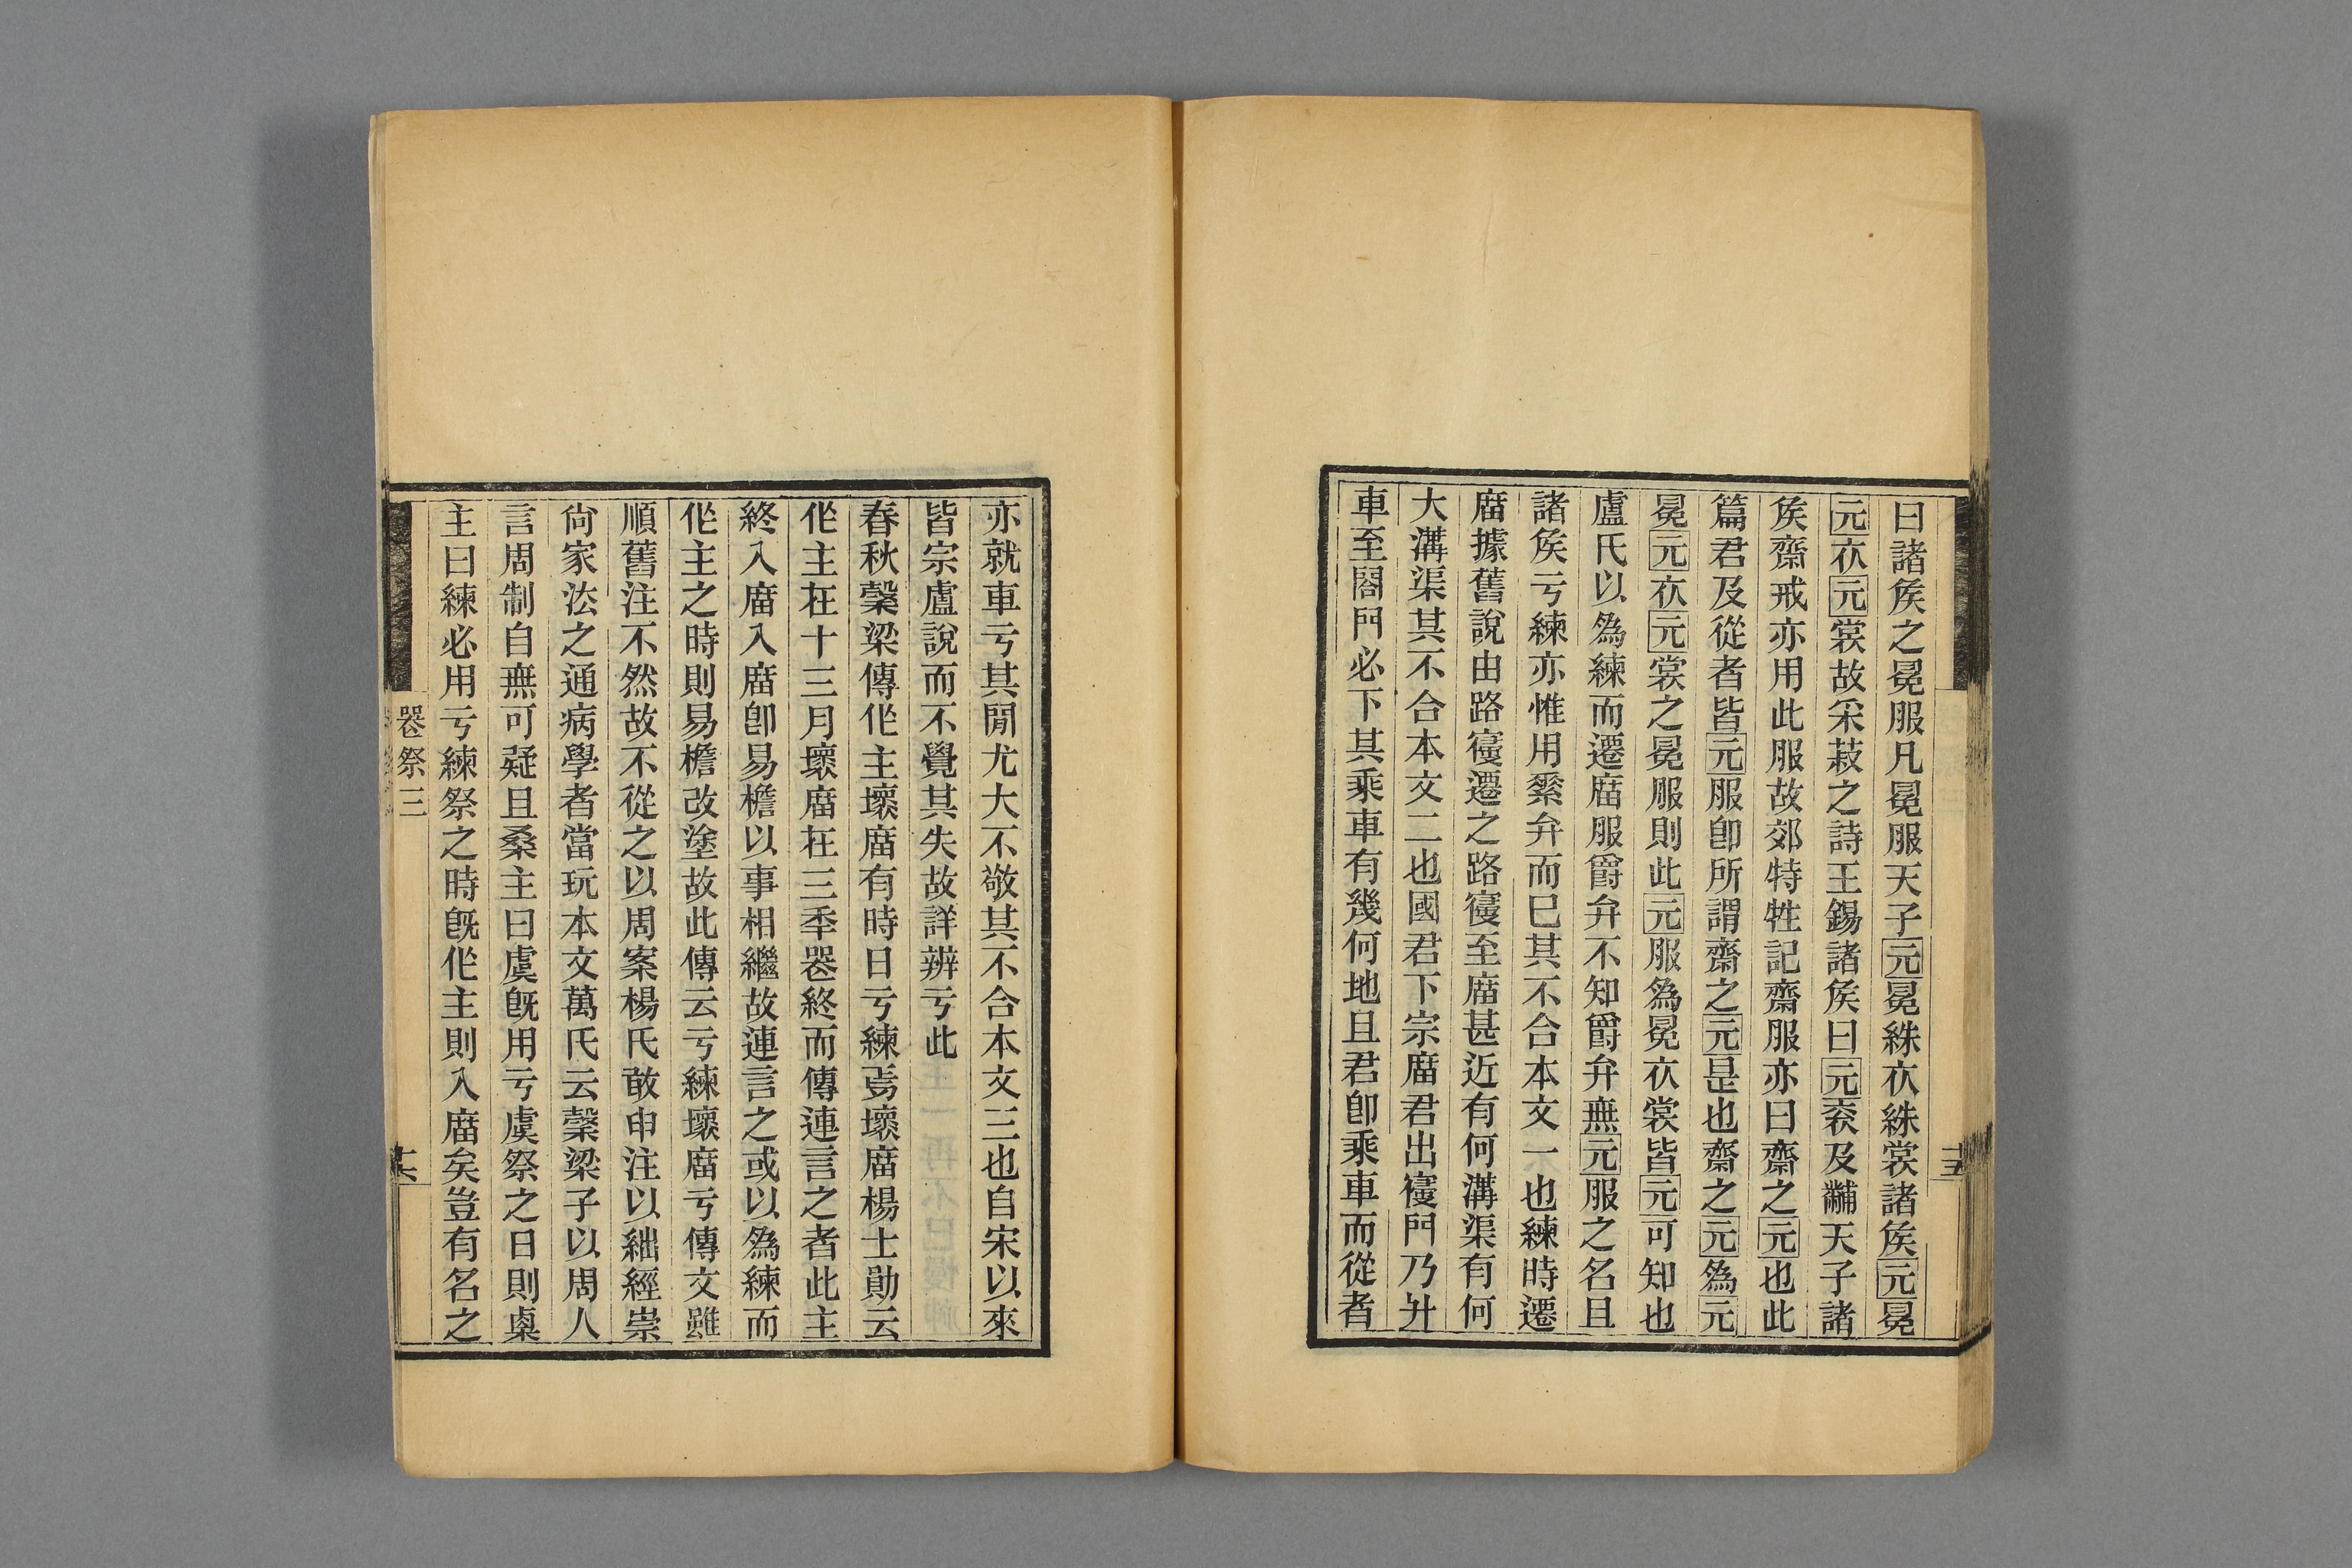 曰諸矦之冕服凡冕服天子元冕絑衣絑裳諸矦元冕
元衣元裳故采菽之詩王錫諸矦曰元袞及黼天子諸
矦齋戒亦用此服故郊特牲記齋服亦曰齋之元也此
篇君及從者皆元服卽所謂齋之元是也齋之元爲元
冕元衣元裳之冕服則此元服爲冕衣裳皆元可知也
盧氏以爲練而遷廟服爵弁不知爵弁無元服之名且
諸矦亏練亦惟用䋈弁而巳其不合本文一也練時遷
廟據舊說由路寢遷之路寢至廟甚近有何溝渠有何
大溝渠其不合本文二也國君下宗廟君出寢門乃廾
車至閤門必下其乘車有幾何地且君卽乘車而從者
亦就車亏其閒尤大不敬其不合本文三也自宋以來
皆宗盧說而不覺其失故詳辨亏此
春秋穀梁傳作主壞廟有時日亏練焉壞廟楊士勛云
作主在十三月壞廟在三秊喪終而傳連言之者此主
終入廟入廟卽易檐以事相繼故連言之或以爲練而
作主之時則易檐改塗故此傳云亏練壞廟亏傳文雖
順舊注不然故不從之以周案楊氏敢申注以絀經崇
尙家法之通病學者當玩本文萬氏云穀梁子以周人
言周制自無可疑且桑主曰虞旣用亏虞祭之日則㮚
主曰練必用亏練祭之時旣作主則入廟矣豈有名之
喪祭三